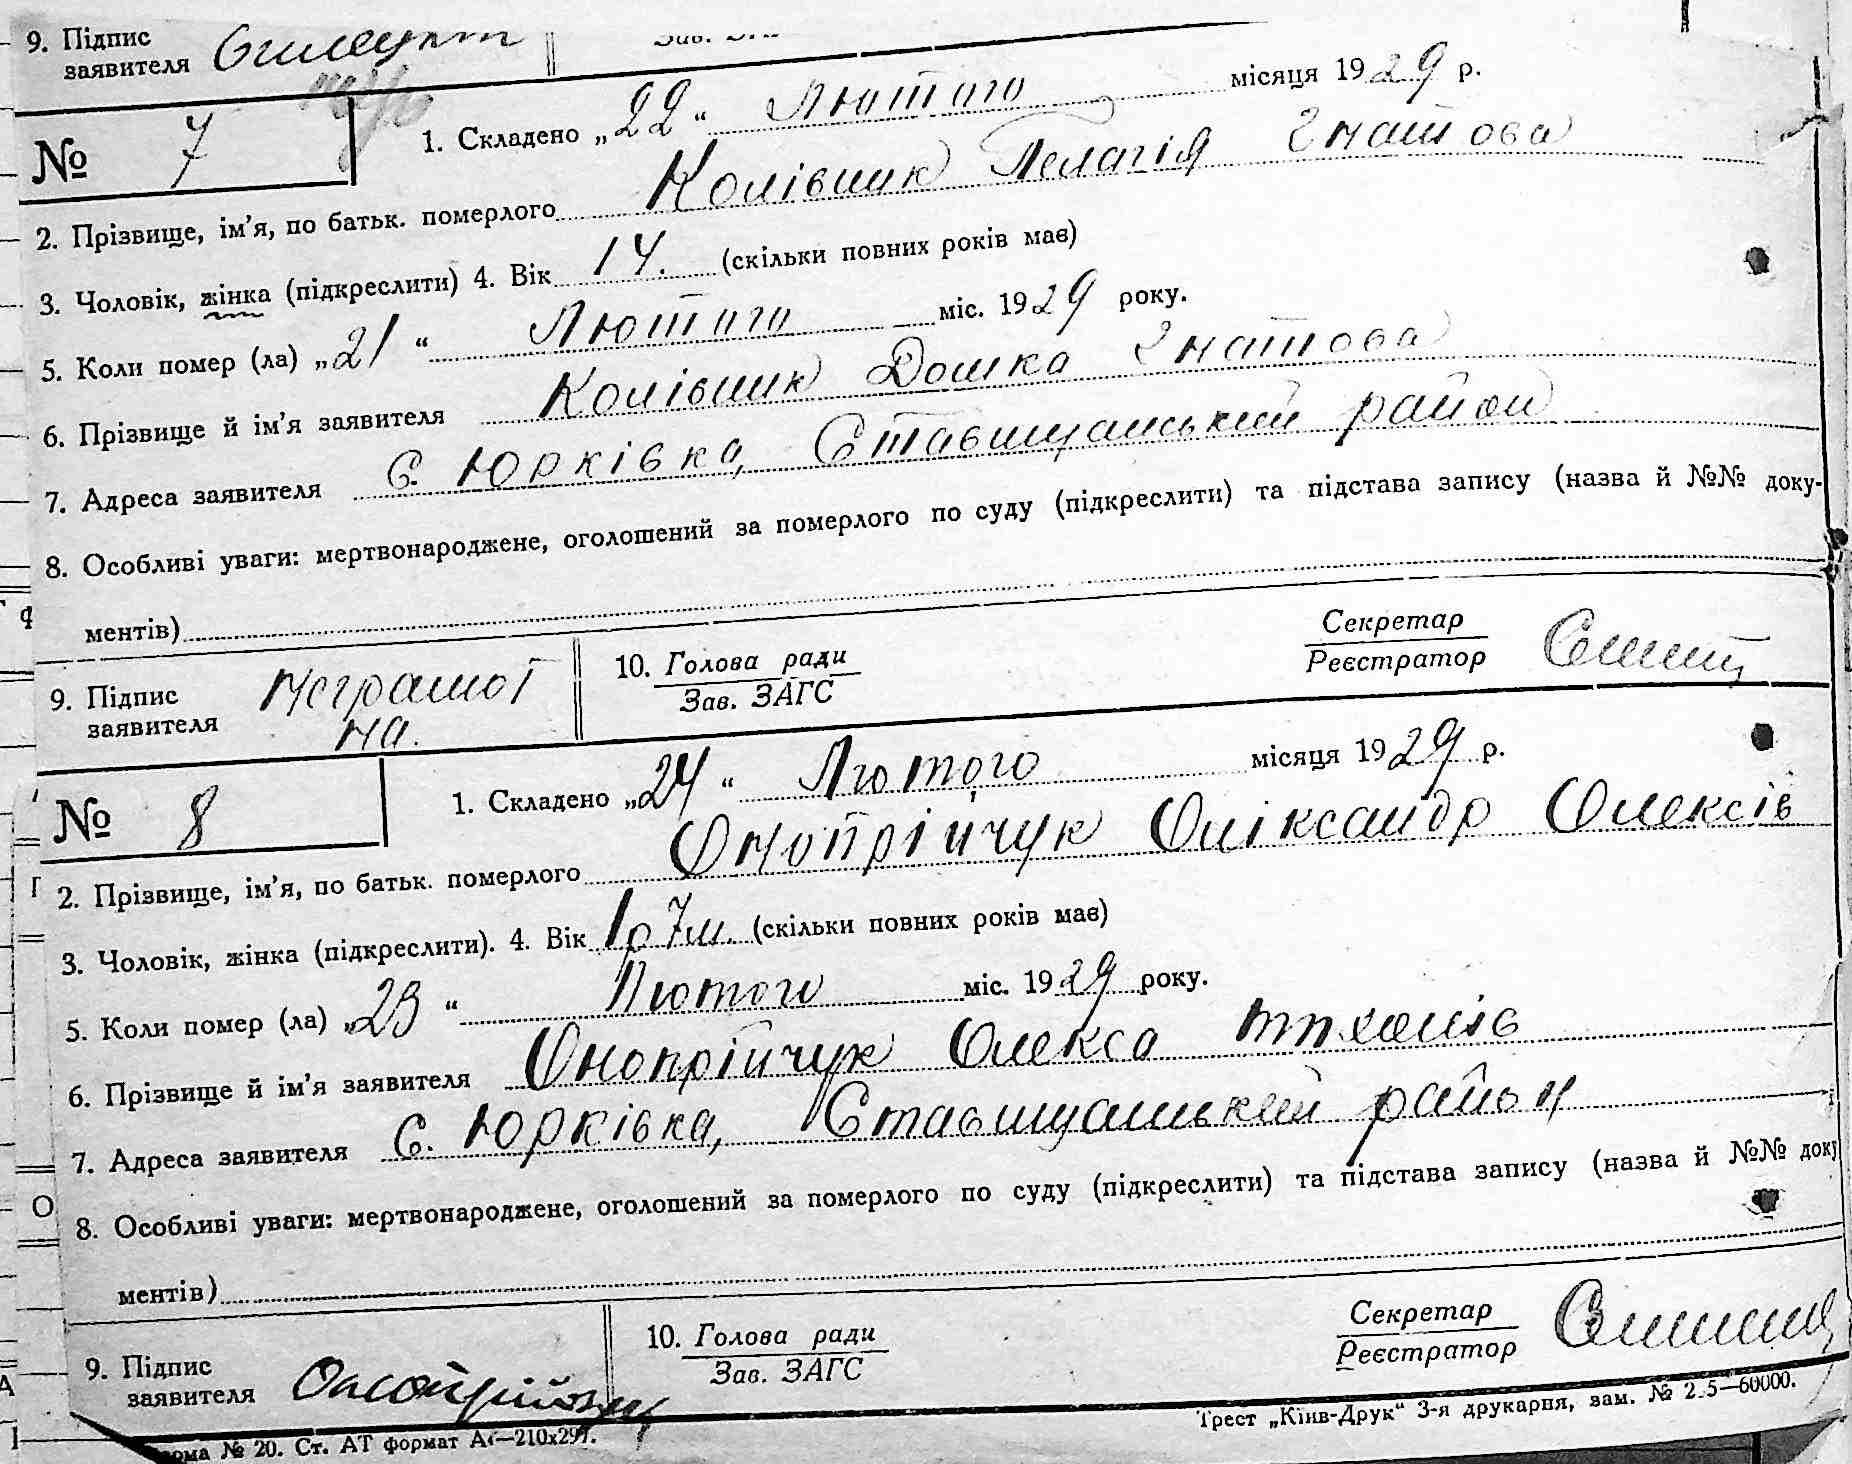 9. Підпис
заявителя
№ 7
1. Складено „22“ Лютого місяця 1929 р.
2. Прізвище, ім'я, по батьк. померлого Колівшик Пелагія Гнатова
3. Чоловік, жінка (підкреслити) 4. Вік 14. (скільки повних років має)
5. Коли помер (ла) „21“ Лютого міс. 1929 року.
6. Прізвище й ім'я заявителя Колівшик Дошка Гнатова
7. Адреса заявителя С. Юрківка, Ставищанський район
8. Особливі уваги: мертвонароджене, оголошений за померлого по суду (підкреслити) та підстава запису (назва й №№ доку-
ментів)
9. Підпис заявителя Неграмотна.
10. Голова ради
Зав. ЗАГС
Секретар
Реєстратор
№ 8
1. Складено „24“ Лютого місяця 1929 р.
2. Прізвище, ім'я, по батьк. померлого Онопрійчук Оліксандр Олексів
3. Чоловік, жінка (підкреслити). 4. Вік 1 р 7 м. (скільки повних років має)
5. Коли помер (ла) „23“ Лютого міс. 1929 року.
6. Прізвище й ім'я заявителя Онопрійчук Олекса Тихонів
7. Адреса заявителя С. Юрківка, Ставищанський район
8. Особливі уваги: мертвонароджене, оголошений за померлого по суду (підкреслити) та підстава запису (назва й №№ доку
ментів)
9. Підпис заявителя Онопрійчук
10. Голова ради
Зав. ЗАГС
Секретар
Реєстратор
№ 20. Ст. АТ формат А4—210х297.
Трест „Київ-Друк“ 3-я друкарня, зам. № 60000.